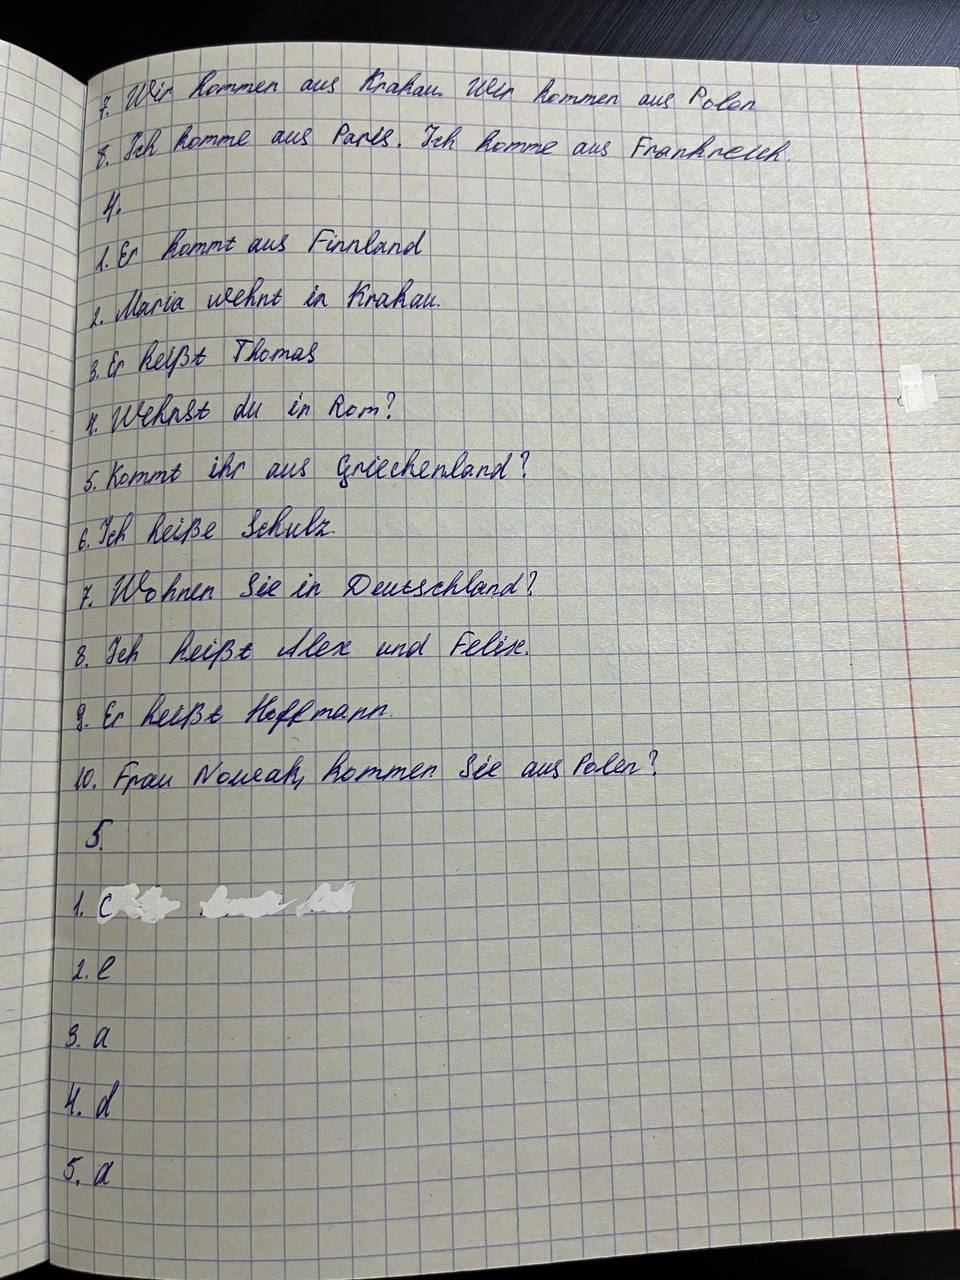 7. Wir kommen aus Krakau. Wir kommen aus Polen
8. Ich komme aus Paris. Ich komme aus Frankreich.
4.
1. Er kommt aus Finnland
2. Maria wohnt in Krakau.
3. Er heißt Thomas
4. Wohnst du in Rom?
5. Kommt ihr aus Griechenland?
6. Ich heiße Schulz.
7. Wohnen Sie in Deutschland?
8. Ich heißt Alex und Felix.
9. Er heißt Hoffmann.
10. Frau Nowak, kommen Sie aus Polen?
5.
1. c
2. e
3. a
4. d
5. a